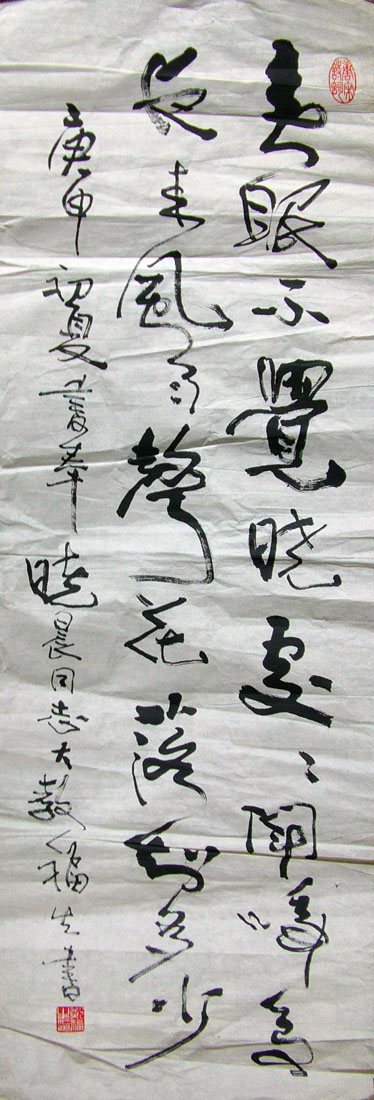 春眠不覺曉處〻聞啼鳥
夜来風雨聲花落知多少
庚申初夏書奉曉晨同志大教福生書